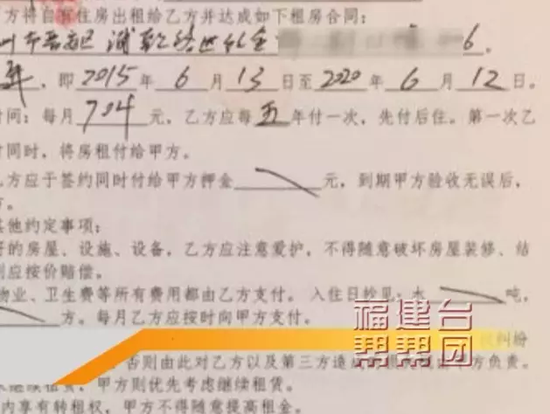 方将自有住房出租给乙方并达成如下租房合同：
州市晋安区 6.
年，即2015年6月13日至2020年6月12日。
时间：每月704元，乙方应每五年付一次，先付后住。第一次乙
付同时，将房租付给甲方。
乙方应于签约同时付给甲方押金元，到期甲方验收无误后，
方。
其他约定事项：
好的房屋、设施、设备，乙方应注意爱护，不得随意破坏房屋装修、结
则应按价赔偿。
物业、卫生费等所有费用都由乙方支付。入住日抄见：水吨，
方。每月乙方应按时向甲方支付。
福建台
帮帮团
纠纷
否则由此对乙方以及第三方造 方负责。
继续租赁，甲方则优先考虑继续租赁。
内享有转租权，甲方不得随意提高租金。